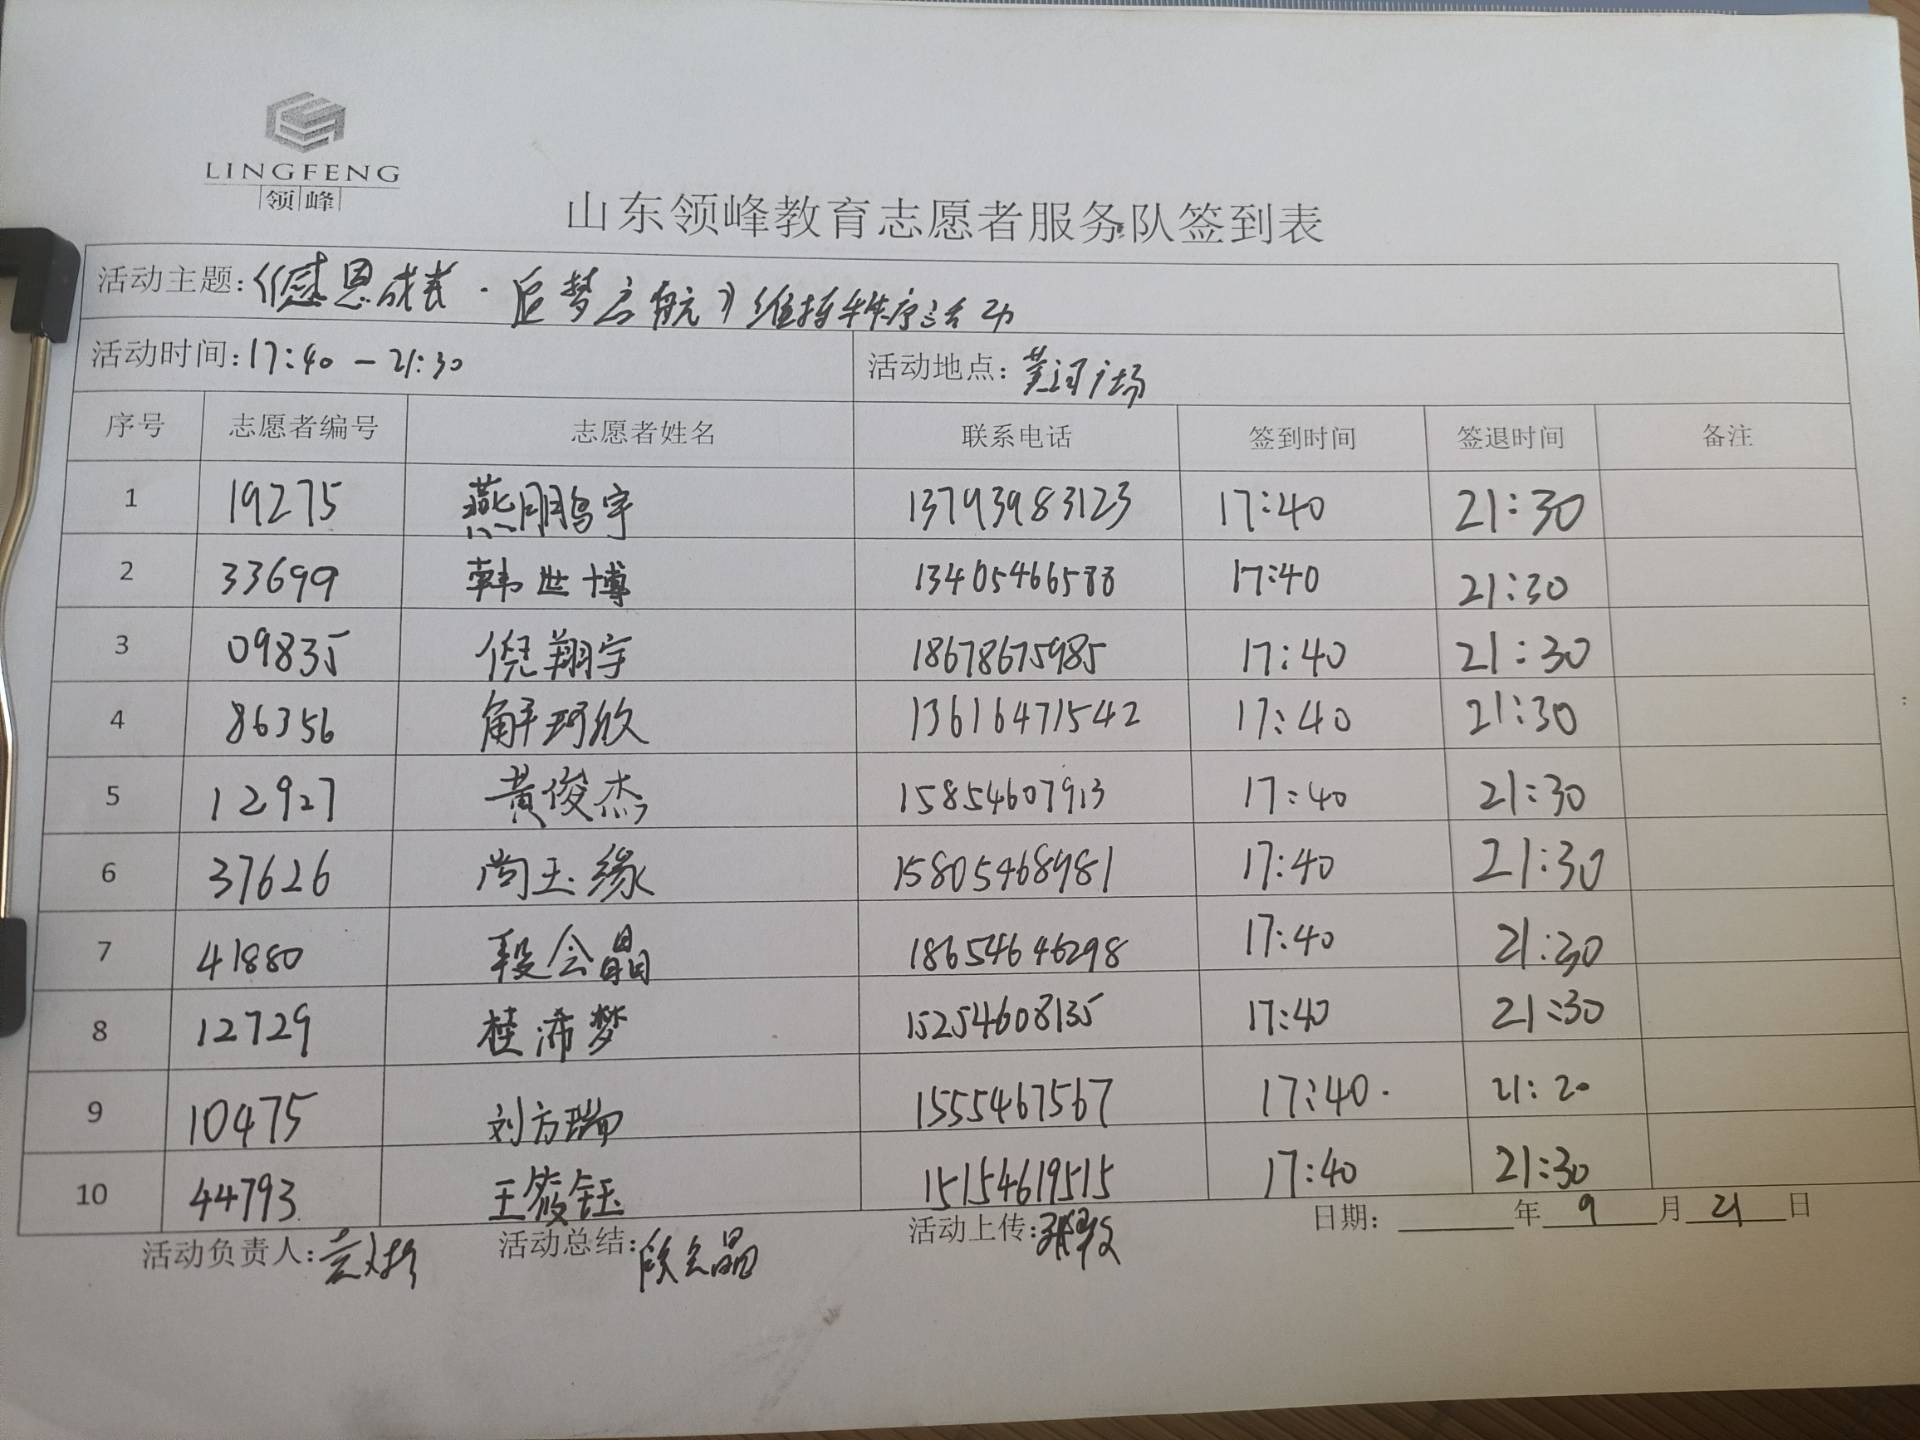 LINGFENG
领峰
山东领峰教育志愿者服务队签到表
活动主题:《感恩成长·追梦启航》维持秩序活动
活动时间:17:40-21:30 活动地点:黄河广场
序号 志愿者编号 志愿者姓名 联系电话 签到时间 签退时间 备注
1 19275 燕鹏宇 13793983123 17:40 21:30
2 33699 韩世博 13405466588 17:40 21:30
3 09835 倪翔宇 18678675985 17:40 21:30
4 86356 解珂欣 13616471542 17:40 21:30
5 12927 黄俊杰 15854607913 17:40 21:30
6 37626 尚玉缘 15805468981 17:40 21:30
7 41880 段会晶 18654646298 17:40 21:30
8 12729 桂浠梦 15254608135 17:40 21:30
9 10475 刘方瑞 1555467567 17:40. 21:20
10 44793 王筱钰 15154619515 17:40 21:30
活动负责人: 活动总结:段会晶 活动上传: 日期: 年 9 月 21 日